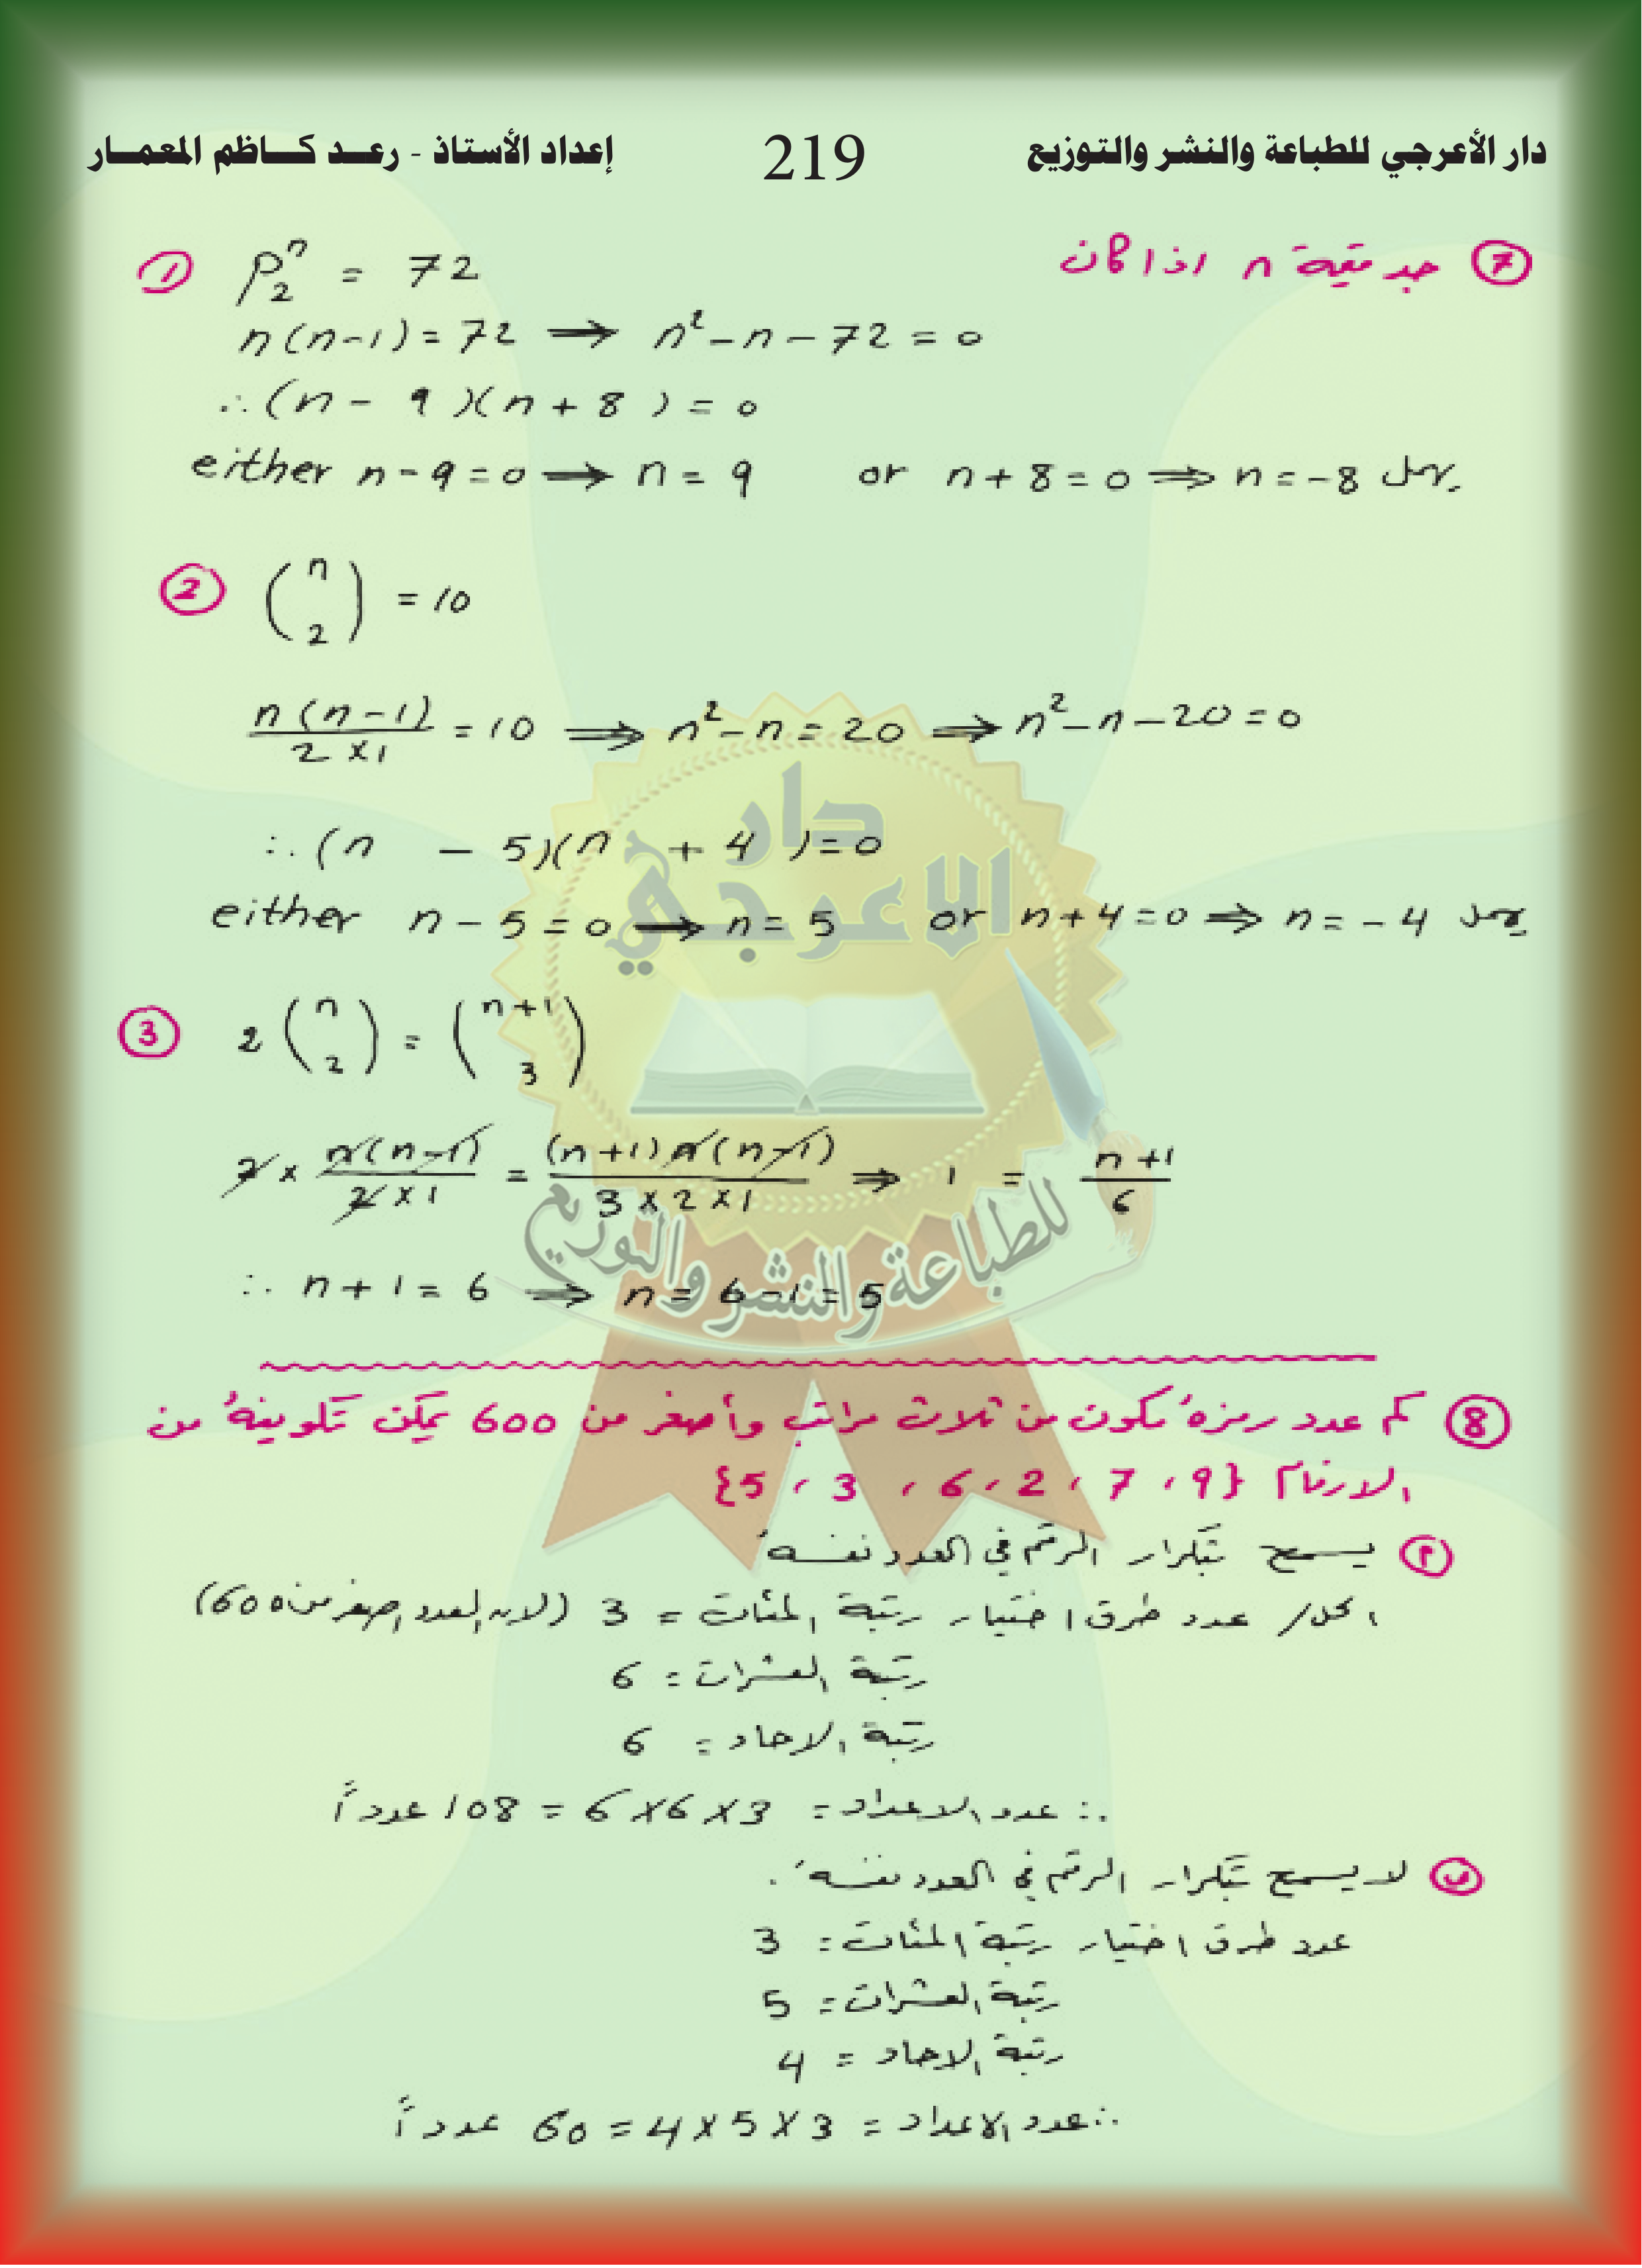 دار الأعرجي للطباعة والنشر والتوزيع 219 إعداد الأستاذ - رعــد كـــاظم المعمـــار
⑦ جد قيمة n اذا كان
① P₂ⁿ = 72
n(n-1) = 72 ⟹ n² - n - 72 = 0
∴ (n - 9)(n + 8) = 0
either n - 9 = 0 ⟹ n = 9 or n + 8 = 0 ⟹ n = -8 يهمل
② (n 2) = 10
n(n-1)/2×1 = 10 ⟹ n² - n = 20 ⟹ n² - n - 20 = 0
∴ (n - 5)(n + 4) = 0
either n - 5 = 0 ⟹ n = 5 or n + 4 = 0 ⟹ n = -4 يهمل
③ 2 (n 2) = (n+1 3)
2 × n(n-1)/2×1 = (n+1)n(n-1)/3×2×1 ⟹ 1 = n+1/6
∴ n + 1 = 6 ⟹ n = 6 - 1 = 5
⑧ كم عدد رمزه مكون من ثلاث مراتب وأصغر من 600 يمكن تكوينه من
الارقام {9 ، 7 ، 2 ، 6 ، 3 ، 5}
أ يسمح بتكرار الرقم في العدد نفسه
الحل/ عدد طرق اختيار رتبة المئات = 3 (لان العدد اصغر من 600)
رتبة العشرات = 6
رتبة الاحاد = 6
∴ عدد الاعداد = 3×6×6 = 108 عدداً
ب لا يسمح بتكرار الرقم في العدد نفسه.
عدد طرق اختيار رتبة المئات = 3
رتبة العشرات = 5
رتبة الاحاد = 4
∴ عدد الاعداد = 3×5×4 = 60 عدداً
دار
الاعرجي
للطباعة والنشر والتوزيع